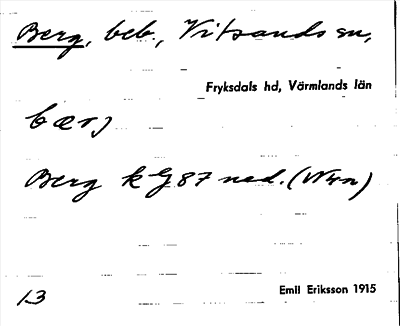 Berg, beb., Vitsands sn,
Fryksdals hd, Värmlands län
bærj
Berg k G 87 ned. (W4n)
13
Emil Eriksson 1915